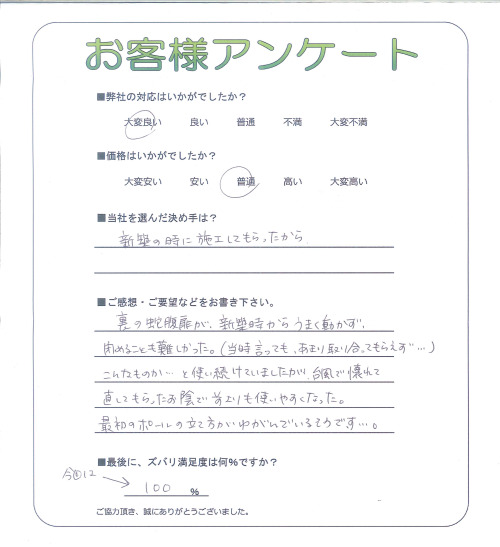 お客様アンケート
■弊社の対応はいかがでしたか？
大変良い 良い 普通 不満 大変不満
■価格はいかがでしたか？
大変安い 安い 普通 高い 大変高い
■当社を選んだ決め手は？
新築の時に施工してもらったから
■ご感想・ご要望などをお書き下さい。
裏の蛇腹扉が、新築時からうまく動かず、
閉めることも難しかった。(当時言っても、あまり取り合ってもらえず…)
こんなものか…と使い続けていましたが、台風で壊れて
直してもらったお陰で前よりも使いやすくなった。
最初のポールの立て方がゆがんでいるそうです…。
■最後に、ズバリ満足度は何％ですか？
今回は
100 ％
ご協力頂き、誠にありがとうございました。